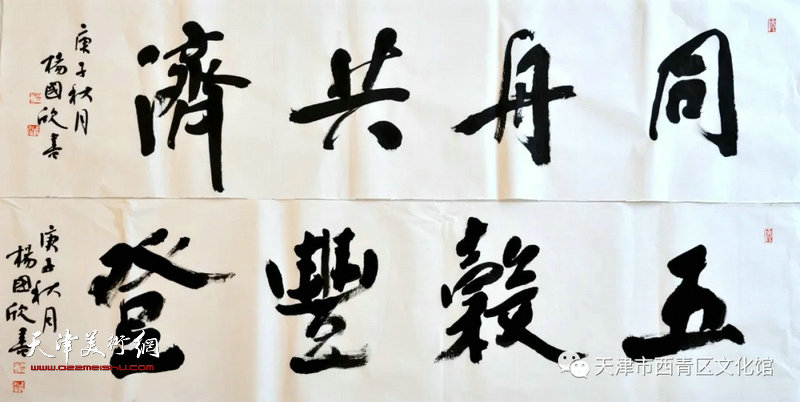 同舟共濟
庚子秋月
楊國欣書
五穀豐登
庚子秋月
楊國欣書
天津美術網
www.022meishu.com
天津市西青区文化馆